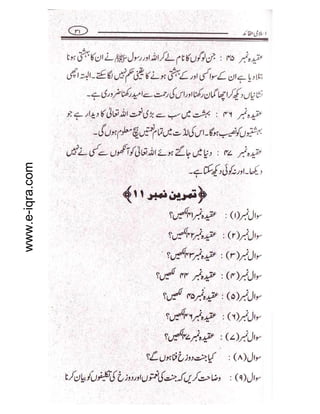 اسلامی عقائد
۳۱
عقیدہ نمبر ۴۵ : جن لوگوں کا نام لے کر اللہ اور رسول ﷺ نے ان کا بہشتی ہونا
بتلا دیا ہے ان کے سوا کسی اور کے بہشتی ہونے کا یقینی حکم نہیں لگا سکتے۔ البتہ اچھی
نشانیاں دیکھ کر اچھا گمان رکھنا اور اس کی رحمت سے امید رکھنا ضروری ہے۔
عقیدہ نمبر ۴۶ : بہشت میں سب سے بڑی نعمت اللہ تعالیٰ کا دیدار ہے جو
بہشتیوں کو نصیب ہوگا۔ اس کی لذت میں تمام نعمتیں ہیچ معلوم ہوں گی۔
عقیدہ نمبر ۴۷ : دنیا میں جاگتے ہوئے اللہ تعالیٰ کو آنکھوں سے کسی نے نہیں
دیکھا۔ اور نہ کوئی دیکھ سکتا ہے۔
﴿تمرین نمبر ۱۱﴾
سوال نمبر (۱) : عقیدہ نمبر ۴۱ لکھیں؟
سوال نمبر (۲) : عقیدہ نمبر ۴۲ لکھیں؟
سوال نمبر (۳) : عقیدہ نمبر ۴۳ لکھیں؟
سوال نمبر (۴) : عقیدہ نمبر ۴۴ لکھیں؟
سوال نمبر (۵) : عقیدہ نمبر ۴۵ لکھیں؟
سوال نمبر (۶) : عقیدہ نمبر ۴۶ لکھیں؟
سوال نمبر (۷) : عقیدہ نمبر ۴۷ لکھیں؟
سوال نمبر (۸) : کیا جنت دوزخ فنا ہوں گے؟
سوال نمبر (۹) : وضاحت کریں کہ جنت کی نعمتوں اور دوزخ کی تکلیفوں کو بیان کرنا
www.e-iqra.com